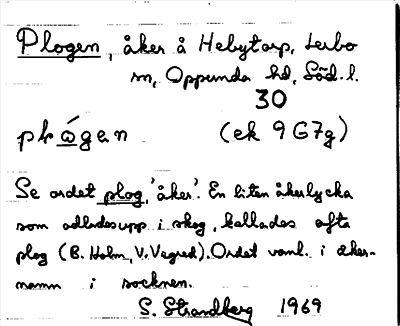 Plogen, åker å Hebytorp, Lerbo
sn, Oppunda hd, Söd. l.
30
plógen (ek 9G7g)
Se ordet plog, 'åker'. En liten åkerlycka
som odlades upp i skog, kallades ofta
plog (B. Holm, V. Vagred). Ordet vanl. i åker-
namn i socknen.
S. Strandberg 1969